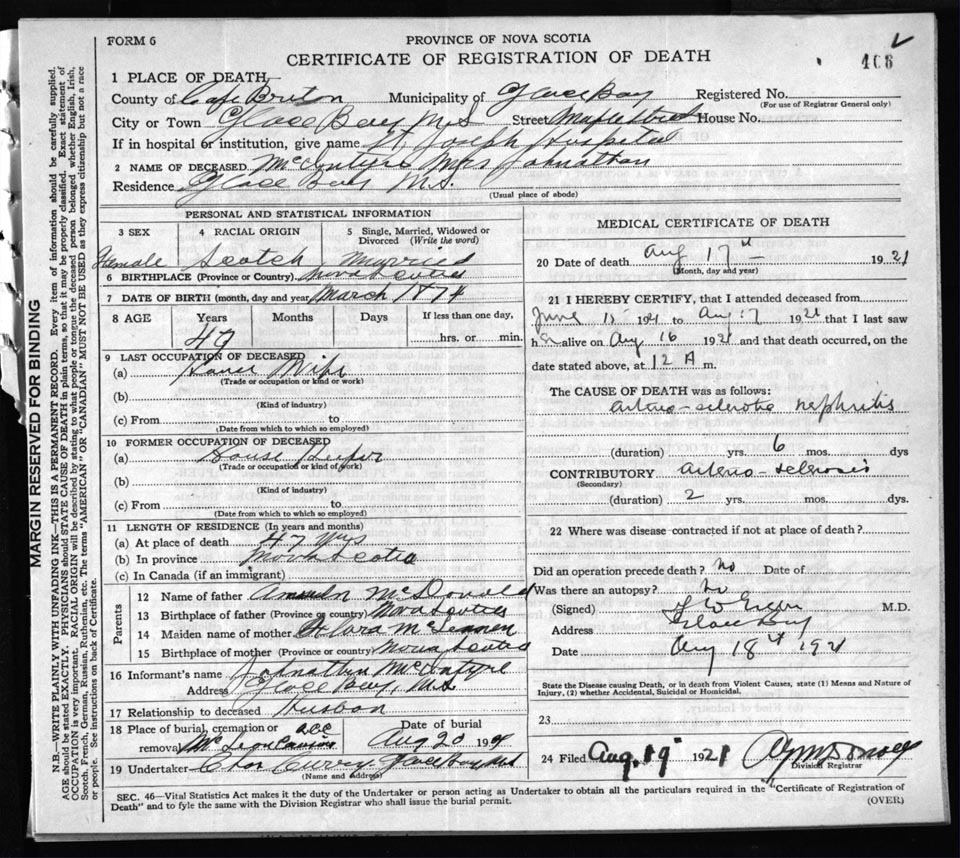 FORM 6
PROVINCE OF NOVA SCOTIA
CERTIFICATE OF REGISTRATION OF DEATH
1 PLACE OF DEATH
County of Cape Breton Municipality of Glace Bay Registered No.
(For use of Registrar General only)
City or Town Glace Bay N.S Street Maple Street House No.
If in hospital or institution, give name St Joseph Hospital
2 NAME OF DECEASED McIntyre Mrs Johnathan
Residence Glace Bay N.S.
(Usual place of abode)
PERSONAL AND STATISTICAL INFORMATION
3 SEX 4 RACIAL ORIGIN 5 Single, Married, Widowed or Divorced (Write the word)
Female Scotch Married
6 BIRTHPLACE (Province or Country) Nova Scotia
7 DATE OF BIRTH (month, day and year) March 1874
8 AGE Years Months Days If less than one day,
47 hrs. or min.
9 LAST OCCUPATION OF DECEASED
(a) House Wife
(Trade or occupation or kind or work)
(b)
(Kind of industry)
(c) From to
(Date from which to which so employed)
10 FORMER OCCUPATION OF DECEASED
(a) House Keeper
(Trade or occupation or kind of work)
(b)
(Kind of industry)
(c) From to
(Date from which to which so employed)
11 LENGTH OF RESIDENCE (In years and months)
(a) At place of death 47 Yrs
(b) In province Nova Scotia
(c) In Canada (if an immigrant)
Parents
12 Name of father McDonald
13 Birthplace of father (Province or country) Nova Scotia
14 Maiden name of mother
15 Birthplace of mother (Province or country) Nova Scotia
16 Informant's name Johnathan McIntyre
Address Glace Bay, N.S
17 Relationship to deceased Husban
18 Place of burial, cremation or removal Date of burial
Aug 20 1921
19 Undertaker Chas Curry Glace Bay N.S
(Name and Address)
MEDICAL CERTIFICATE OF DEATH
20 Date of death Aug 17th 1921
(Month, day and year)
21 I HEREBY CERTIFY, that I attended deceased from
June 15 1921 to Aug 17 1921 that I last saw
her alive on Aug 16 1921 and that death occurred, on the
date stated above, at 12 A m.
The CAUSE OF DEATH was as follows:
arterio-sclerotic nephritis
(duration) yrs. 6 mos. dys.
CONTRIBUTORY arterio-sclerosis
(Secondary)
(duration) 2 yrs. mos. dys.
22 Where was disease contracted if not at place of death?
Did an operation precede death? No Date of
Was there an autopsy? No
(Signed) M.D.
Address Glace Bay
Date Aug 18th 1921
State the Disease causing Death, or in death from Violent Causes, state (1) Means and Nature of
Injury, (2) whether Accidental, Suicidal or Homicidal.
23
24 Filed Aug. 19 1921
Division Registrar
SEC. 46—Vital Statistics Act makes it the duty of the Undertaker or person acting as Undertaker to obtain all the particulars required in the "Certificate of Registration of
Death" and to fyle the same with the Division Registrar who shall issue the burial permit.
(OVER)
MARGIN RESERVED FOR BINDING
N.B.—WRITE PLAINLY WITH UNFADING INK—THIS IS A PERMANENT RECORD. Every item of information should be carefully supplied.
AGE should be stated EXACTLY. PHYSICIANS should STATE CAUSE OF DEATH in plain terms, so that it may be properly classified. Exact statement of
OCCUPATION is very important. RACIAL ORIGIN will be described by stating to what people or tongue the deceased person belonged whether English, Irish,
Scotch, French, German, Russian, Ruthenian, etc. The terms "AMERICAN" OR "CANADIAN" MUST NOT BE USED as they express citizenship but not a race
or people. See instructions on back of Certificate.